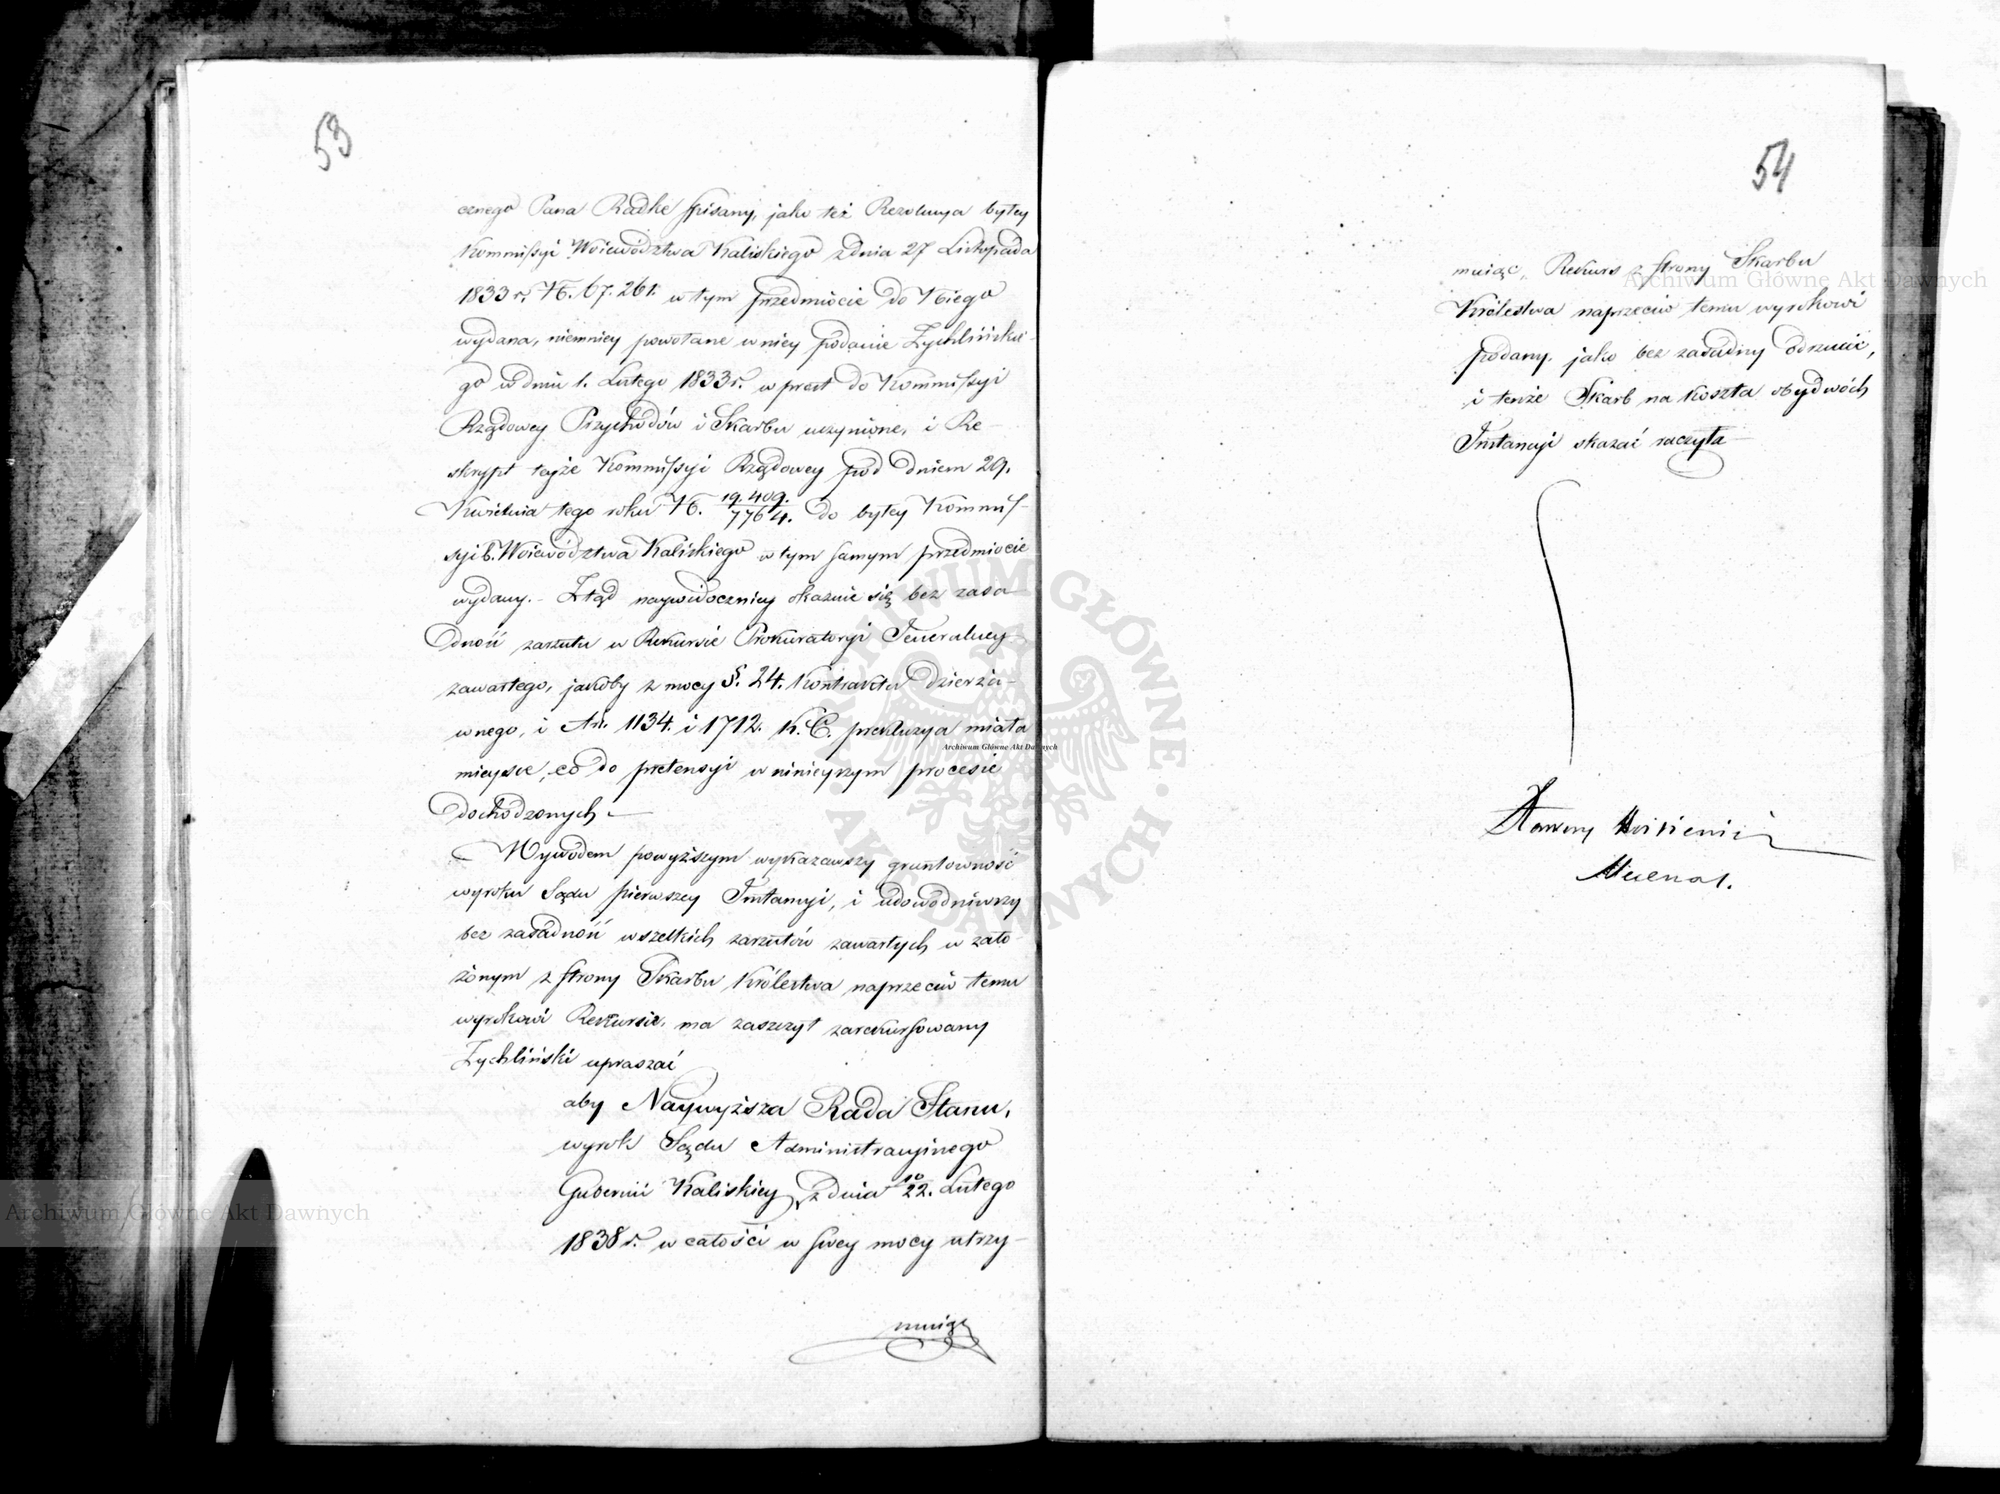 53
cznego Pana Radke spisany, jako też Rezolucya byłey
Kommissyi Województwa Kaliskiego z dnia 27 Listopada
1833 r. N. 67.261. w tym przedmiocie do Niego
wydana, niemniey powołane w niey podanie Zychlińskie-
go w dniu 1. Lutego 1833 r. wprost do Kommissyi
Rządowey Przychodów i Skarbu uczynione, i Re-
skrypt teyże Kommissyi Rządowey pod dniem 29.
Kwietnia tego roku N. 19.409./7764. do byłey Kommis-
syi b. Województwa Kaliskiego w tym samym przedmiocie
wydany. - Ztąd naywidoczniey okazuie się bez zasa-
dność zarzutu w Rekursie Prokuratoryi Jeneralney
zawartego, jakoby z mocy §. 24. Kontraktu dzierża-
wnego, i Art. 1134. i 1712. K. C. prekluzya miała
mieysce, co do pretensyi w ninieyszym procesie
dochodzonych. -
Wywodem powyższym wykazawszy gruntowność
wyroku Sądu pierwszey Instancyi, i udowodniwszy
bez zasadność wszelkich zarzutów zawartych w zało-
żonym z strony Skarbu Królestwa naprzeciw temu
wyrokowi Rekursie, ma zaszczyt zarekursowany
Zychliński upraszać
aby Naywyższa Rada Stanu,
wyrok Sądu Administracyinego
Gubernii Kaliskiey z dnia 10/22. Lutego
1838 r. w całości w swey mocy utrzy-
muiąc
54
muiąc, Rekurs z strony Skarbu
Królestwa naprzeciw temu wyrokowi
podany, jako bez zasadny odrzucić,
i tenże Skarb na koszta obydwóch
Instancyi skazać raczyła
Mecenas.
Archiwum Główne Akt Dawnych
Archiwum Główne Akt Dawnych
Archiwum Główne Akt Dawnych
ARCHIWUM GŁÓWNE AKT DAWNYCH